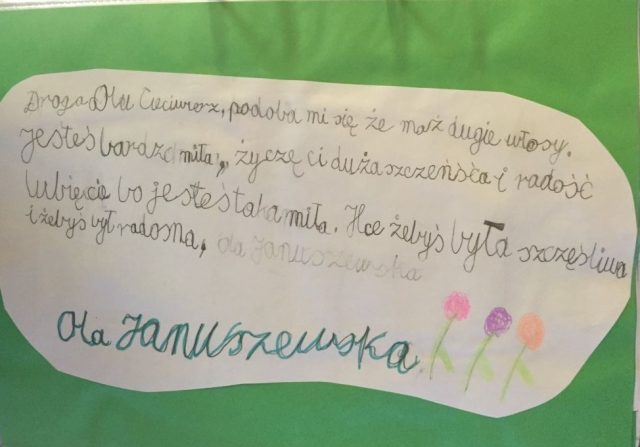 Droga Olu Cieciwierz, podoba mi się że maż dugie włosy.
jesteś bardzo miła, życzę ci duża szczeńśća i radość
lubięcie bo jesteś taka miła. Hce żebyś była szczęśliwa
i żebyś był radosna, ola Januszewska
Ola Januszewska